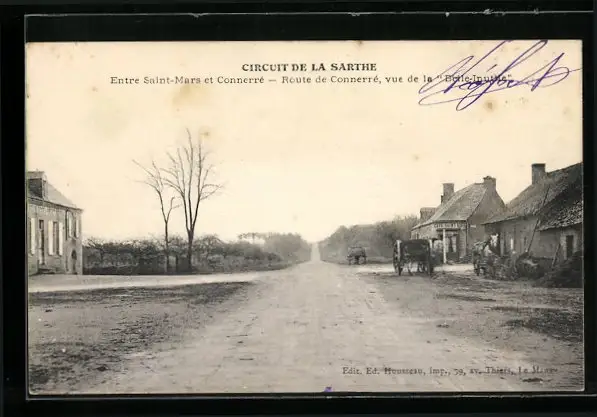 CIRCUIT DE LA SARTHE
Entre Saint-Mars et Connerré — Route de Connerré, vue de la "Belle-Inutile"
Edit. Ed. Housseau, imp., 79, av. Thiers, Le Mans